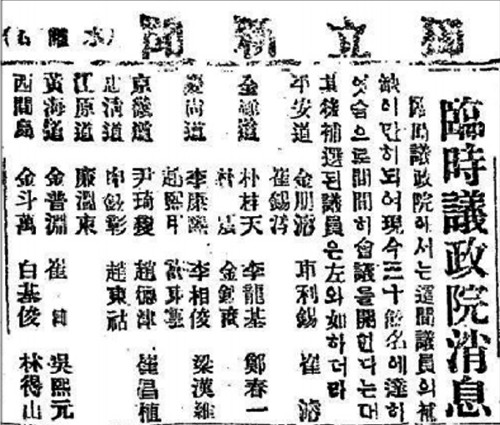 獨立新聞 (水曜日)
臨時議政院消息
臨時議政院에서는 這間議員의 補
缺이 만히 되어 現今 三十餘名에 達히
엿슴으로 間間히 會議를 開한다는대
其後補選된 議員은 左와 如하더라
平安道 金朋濬 車利錫 崔濬
崔錫淳
全羅道 朴桂天 李龍基 鄭春一
朴震
慶尙道 李康熙 李相俊 梁漢緯
趙熙
京畿道 尹琦燮 趙德津 崔昌植
忠淸道 申鉉彰 趙東祜
江原道 廉溫東
黃海道 金普淵 崔日 吳熙元
西間島 金斗萬 白基俊 林得山